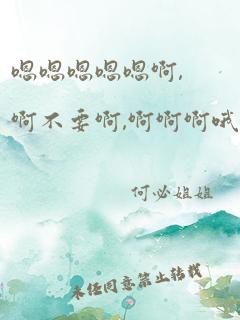 嗯嗯嗯嗯嗯啊,
啊不要啊,啊啊啊哦
何必姐姐
未经同意禁止转载